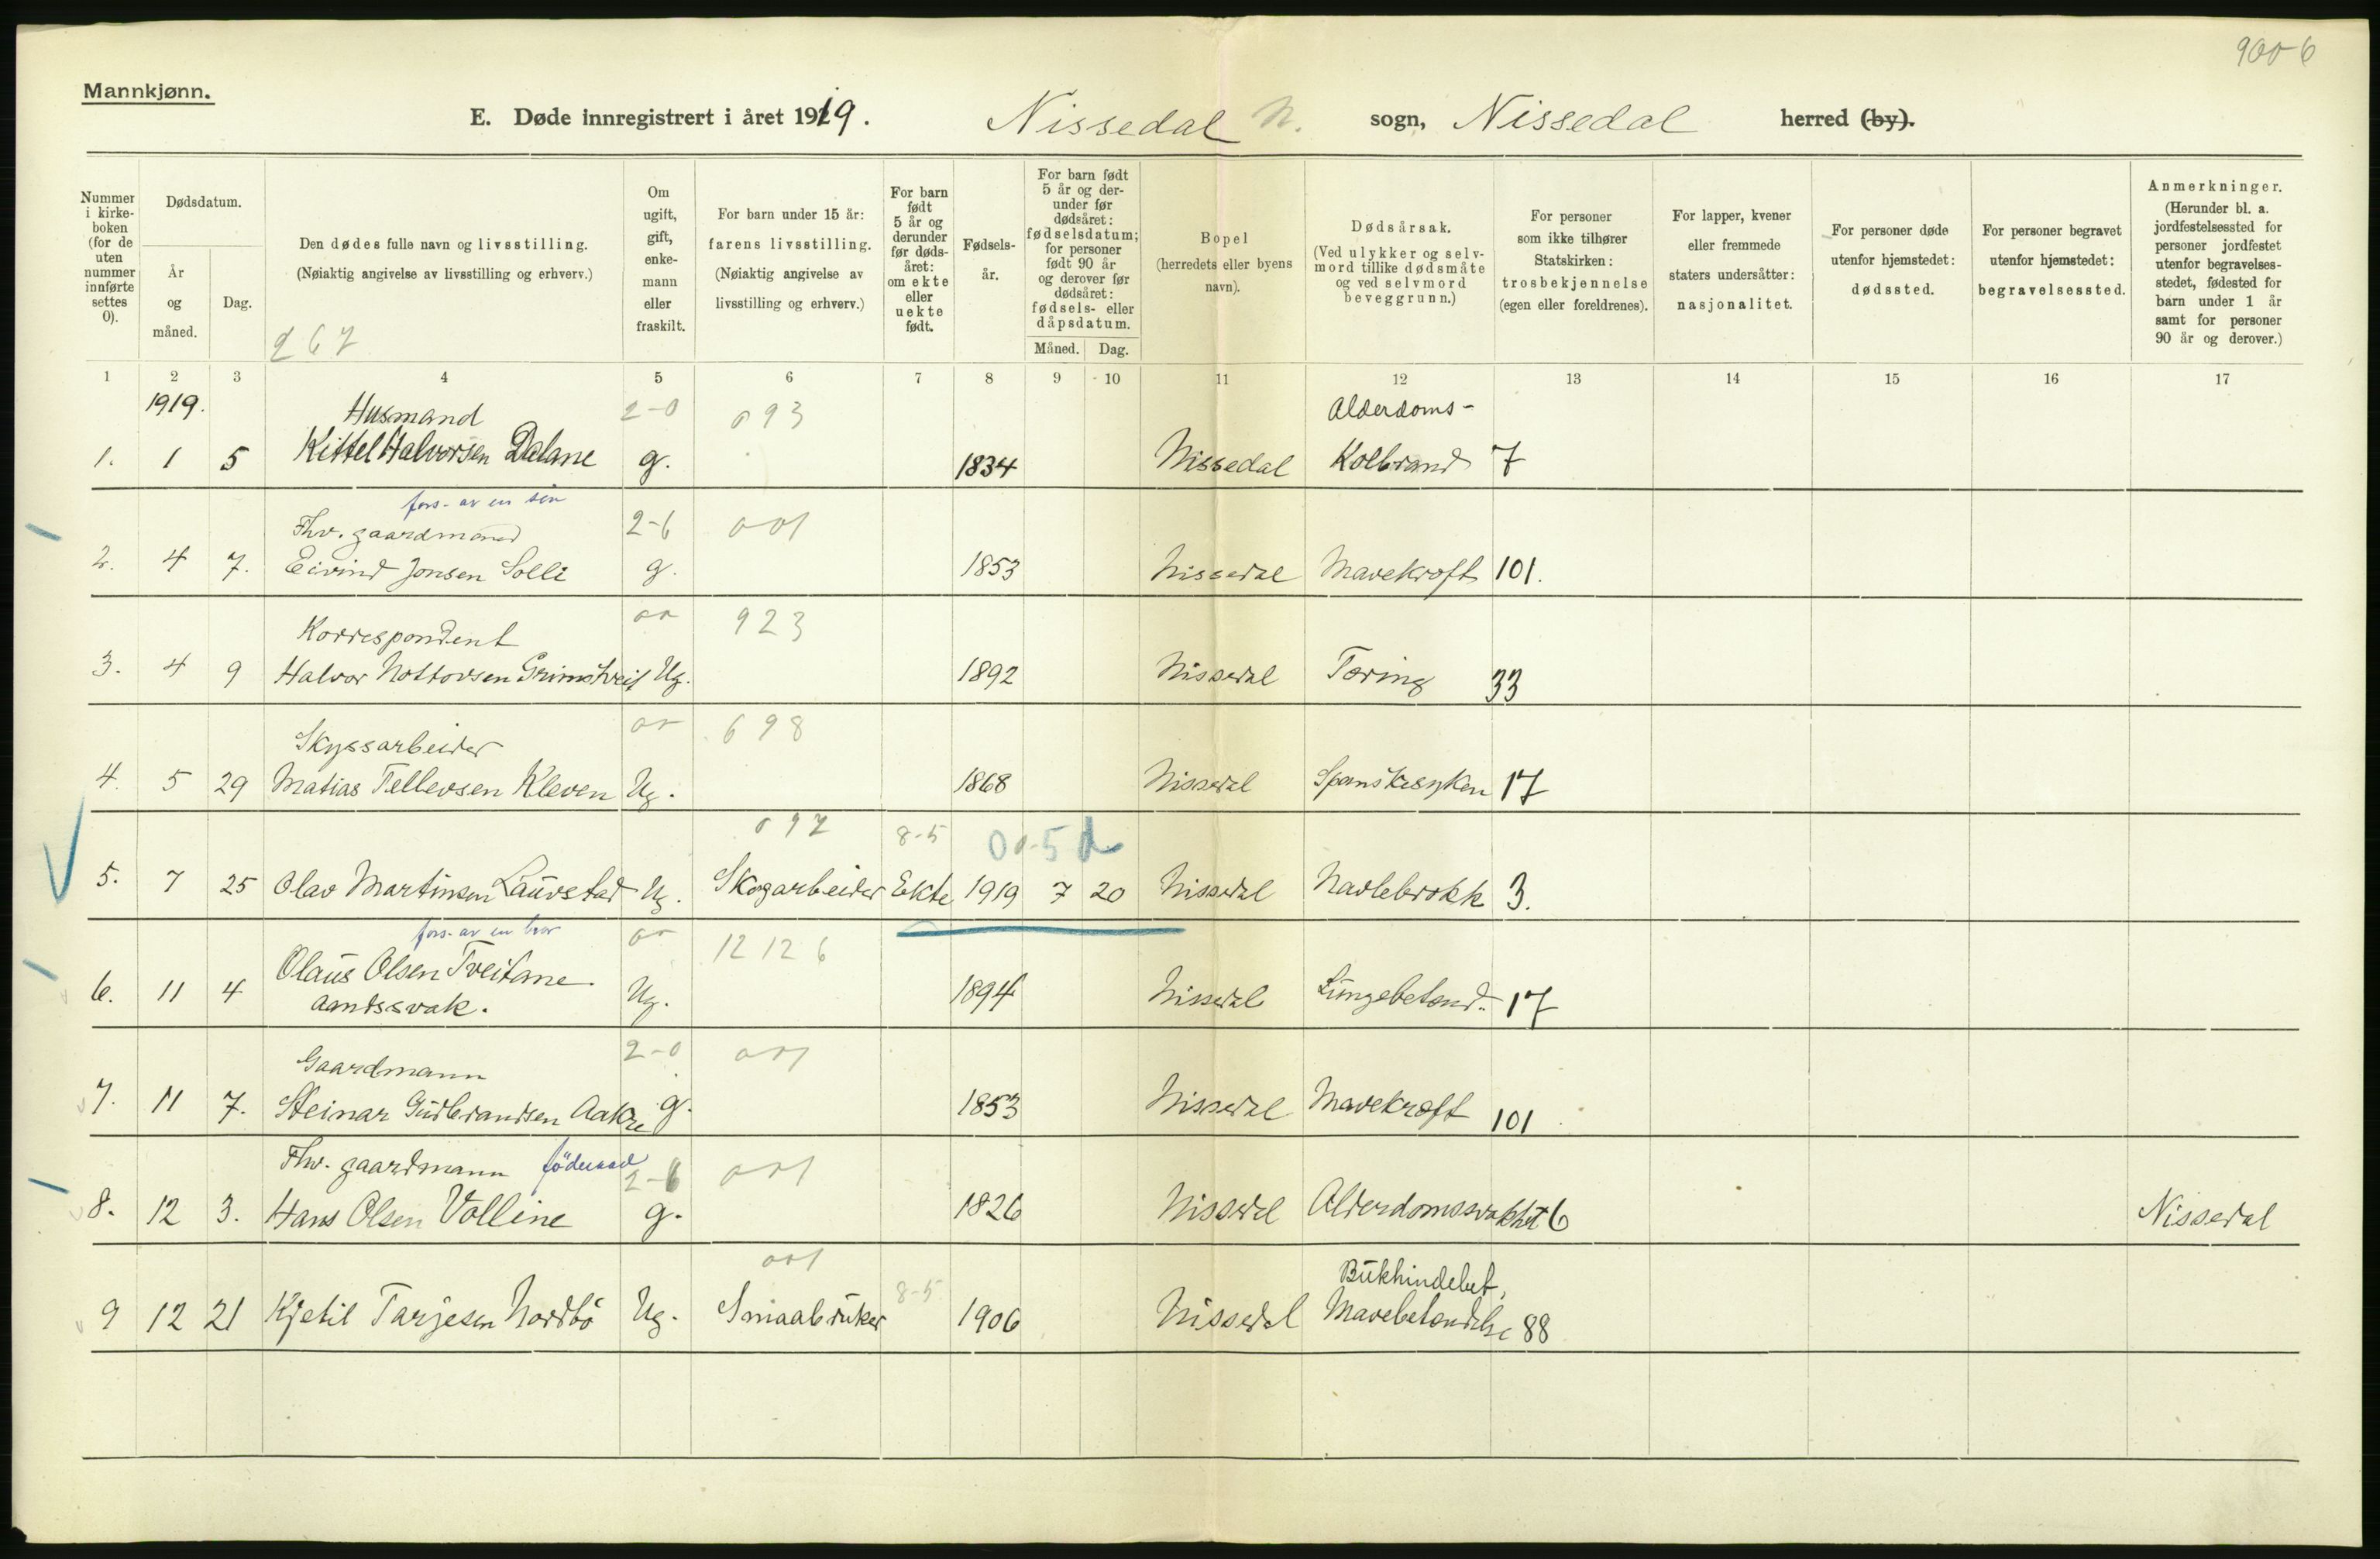 900-6
Mannkjønn.
E. Døde innregistrert i året 1919. Nissedal N. sogn, Nissedal herred (by).
Nummer i kirke-boken (for de uten nummer innførte settes 0).
Dødsdatum.
År og måned.
Dag.
Den dødes fulle navn og livsstilling.
(Nøiaktig angivelse av livsstilling og erhverv.)
267
Om ugift, gift, enke-mann eller fraskilt.
For barn under 15 år: farens livsstilling.
(Nøiaktig angivelse av livsstilling og erhverv.)
For barn født 5 år og derunder før døds-året: om ekte eller uekte født.
Fødsels-år.
For barn født 5 år og der-under før dødsåret: fødselsdatum; for personer født 90 år og derover før dødsåret: fødsels- eller dåpsdatum.
Måned. Dag.
Bopel
(herredets eller byens navn).
Dødsårsak.
(Ved ulykker og selv-mord tillike dødsmåte og ved selvmord beveggrunn.)
For personer som ikke tilhører Statskirken: trosbekjennelse (egen eller foreldrenes).
For lapper, kvener eller fremmede staters undersåtter: nasjonalitet.
For personer døde utenfor hjemstedet: dødssted.
For personer begravet utenfor hjemstedet: begravelsessted.
Anmerkninger.
(Herunder bl. a. jordfestelsessted for personer jordfestet utenfor begravelses-stedet, fødested for barn under 1 år samt for personer 90 år og derover.)
1 2 3 4 5 6 7 8 9 10 11 12 13 14 15 16 17
1919. Husmand 2-0 093 Alderdoms-
1. 1 5 Kittel Halvorsen Dalane g. 1834 Nissedal Kolbrand 7
fors. av en søn
Fhv. gaardmand 2-6 001
2. 4 7. Eivind Jonsen Solli g. 1853 Nissedal Mavekræft 101.
Korrespondent 00 923
3. 4 9 Halvor Nottovsen Grimstveit Ug. 1892 Nissedal Tæring 33
Skyssarbeider 00 698
4. 5 29 Matias Tellevsen Kleven Ug. 1868 Nissedal Spanskesyken 17
097 8-5 00-5d
5. 7 25 Olav Martinsen Lauvstad Ug. Skogarbeider Ekte 1919 7 20 Nissedal Navlebrokk 3.
fors. av en bror 00 12126
6. 11 4 Olaus Olsen Tveitane. Ug. 1894 Nissedal Lungebetænd. 17
aandssvak.
Gaardmann 2-0 001
7. 11 7. Steinar Gudbrandsen Aakre g. 1853 Nissedal Mavekræft 101
Fhv. gaardmann föderaad 2-6 001
8. 12 3. Hans Olsen Volline g. 1826 Nissedal Alderdomssvakhet 6 Nissedal
001 8-5 Bukhindebet,
9 12 21 Kjetil Tarjesen Nordbö Ug. Smaabruker 1906 Nissedal Mavebetændelse 88